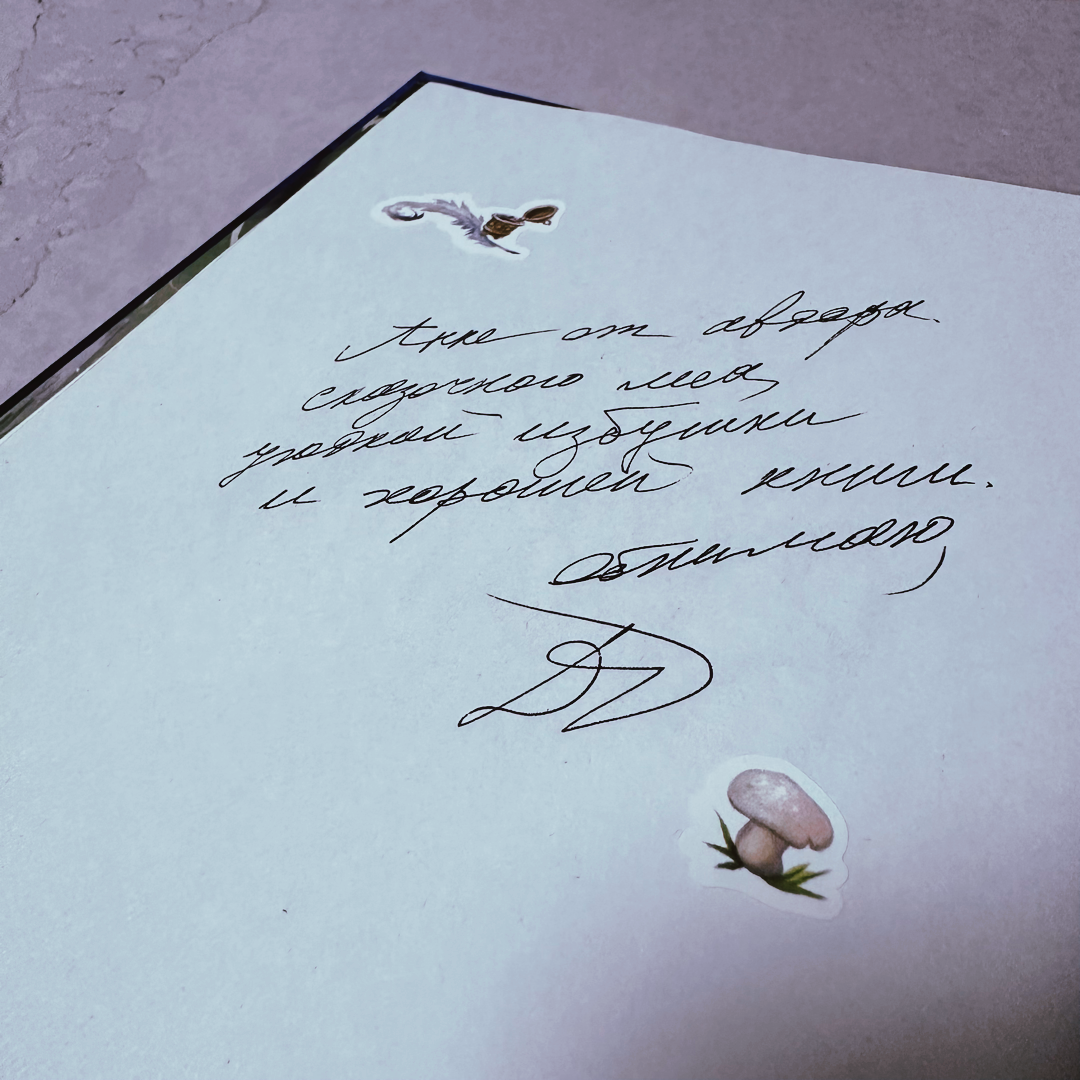 Анне от автора.
сказочного леса,
уютной избушки
и хорошей книги.
обнимаю,